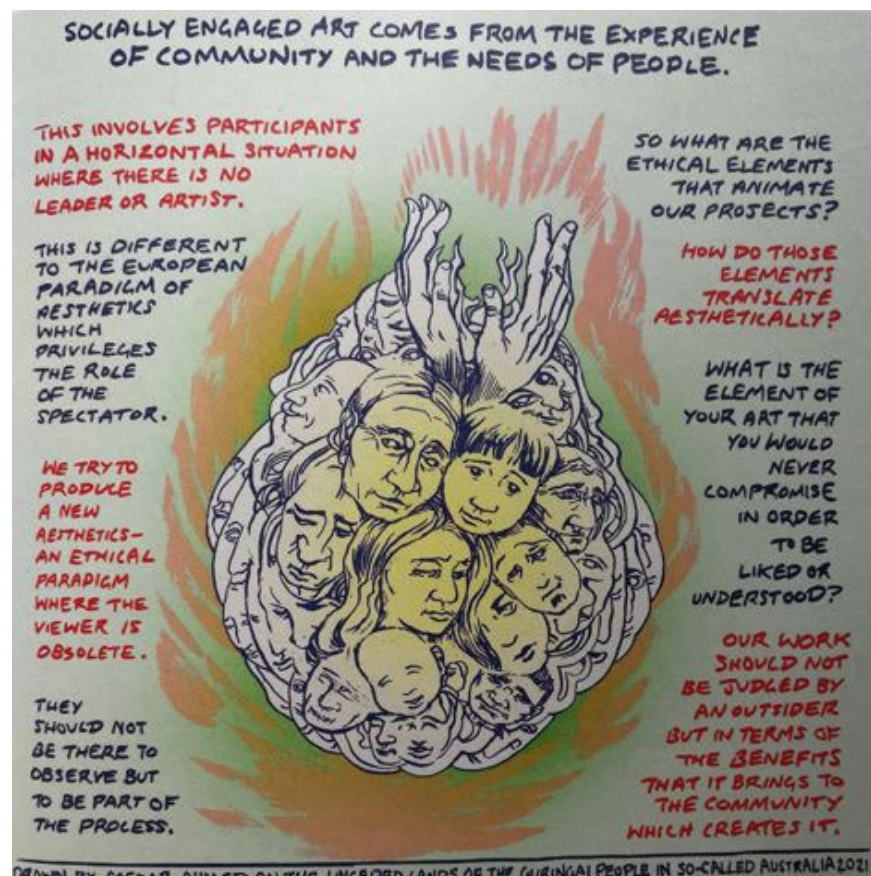 SOCIALLY ENGAGED ART COMES FROM THE EXPERIENCE
OF COMMUNITY AND THE NEEDS OF PEOPLE.
THIS INVOLVES PARTICIPANTS
IN A HORIZONTAL SITUATION
WHERE THERE IS NO
LEADER OR ARTIST.
THIS IS DIFFERENT
TO THE EUROPEAN
PARADIGM OF
AESTHETICS
WHICH
PRIVILEGES
THE ROLE
OF THE
SPECTATOR.
WE TRY TO
PRODUCE
A NEW
AESTHETICS-
AN ETHICAL
PARADIGM
WHERE THE
VIEWER IS
OBSOLETE.
THEY
SHOULD NOT
BE THERE TO
OBSERVE BUT
TO BE PART OF
THE PROCESS.
SO WHAT ARE THE
ETHICAL ELEMENTS
THAT ANIMATE
OUR PROJECTS?
HOW DO THOSE
ELEMENTS
TRANSLATE
AESTHETICALLY?
WHAT IS THE
ELEMENT OF
YOUR ART THAT
YOU WOULD
NEVER
COMPROMISE
IN ORDER
TO BE
LIKED OR
UNDERSTOOD?
OUR WORK
SHOULD NOT
BE JUDGED BY
AN OUTSIDER
BUT IN TERMS OF
THE BENEFITS
THAT IT BRINGS TO
THE COMMUNITY
WHICH CREATES IT.
DRAWN BY ON THE LANDS OF THE PEOPLE IN SO-CALLED AUSTRALIA 2021